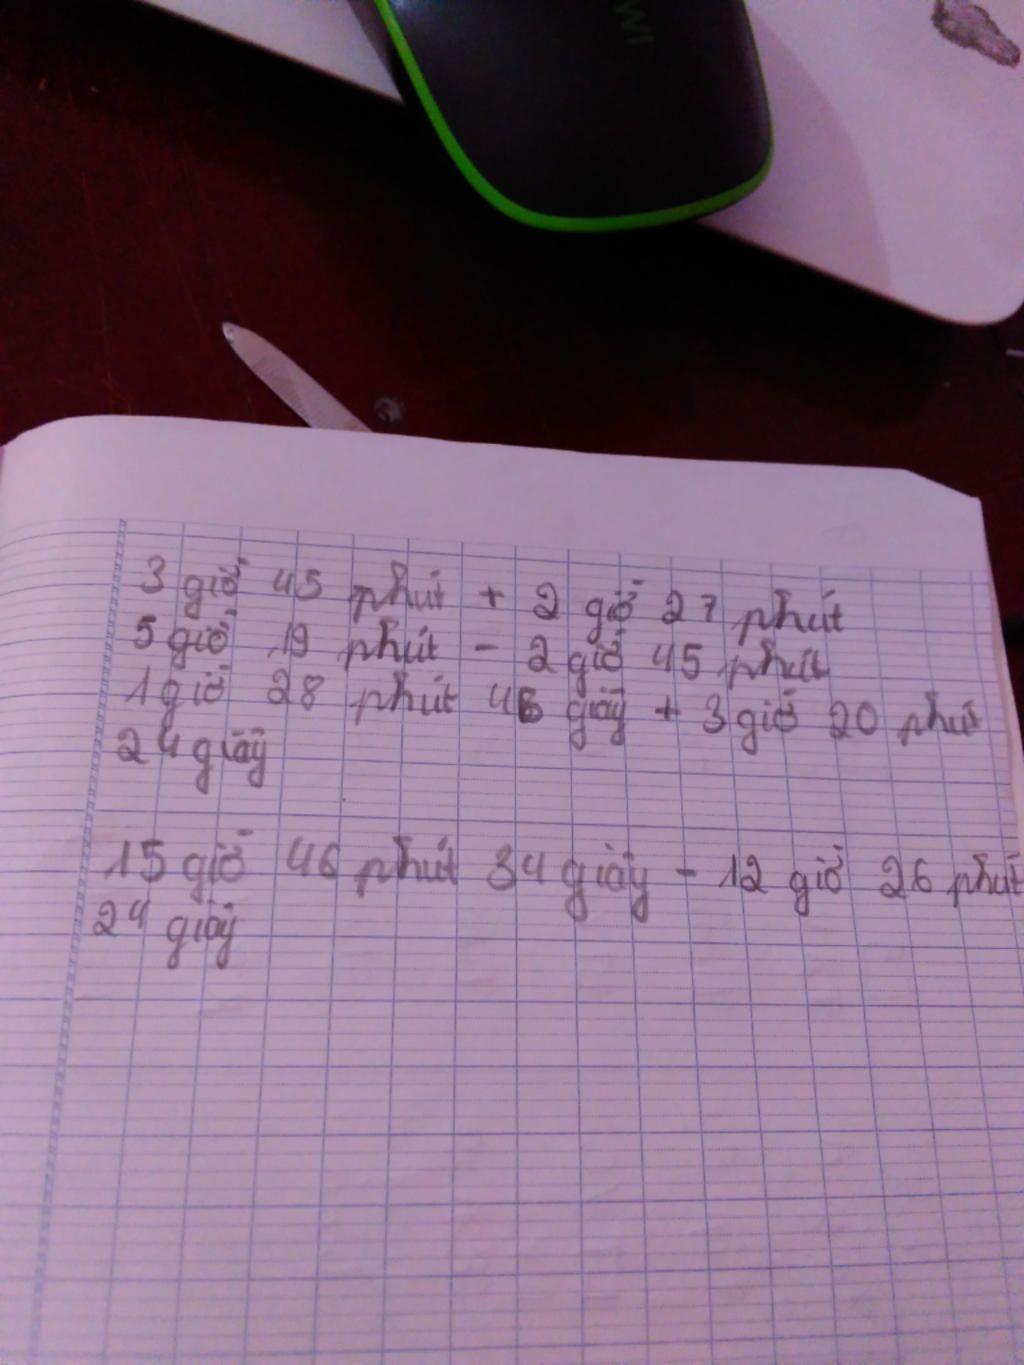 3 giờ 45 phút + 2 giờ 27 phút
5 giờ 19 phút - 2 giờ 45 phút
1 giờ 28 phút 46 giây + 3 giờ 20 phút
24 giây
15 giờ 46 phút 34 giây - 12 giờ 26 phút
24 giây